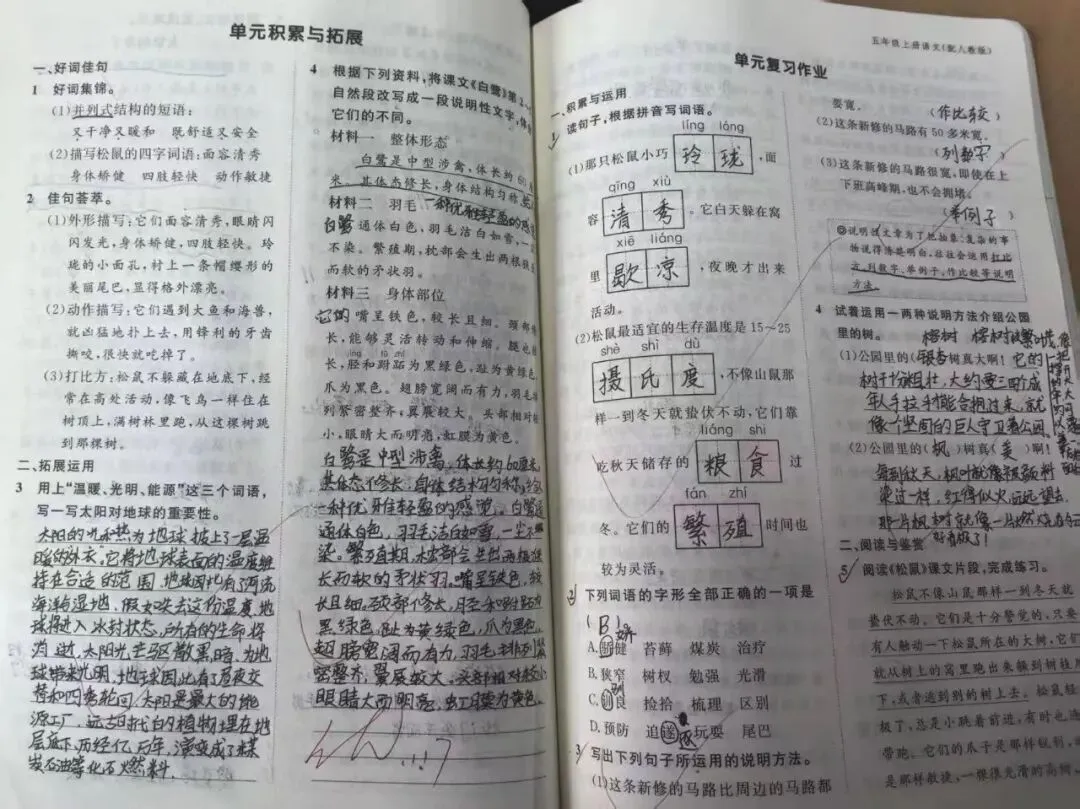 单元积累与拓展
一、好词佳句
1 好词集锦。
(1)并列式结构的短语:
又干净又暖和 既舒适又安全
(2)描写松鼠的四字词语:面容清秀
身体矫健 四肢轻快 动作敏捷
2 佳句荟萃。
(1)外形描写:它们面容清秀,眼睛闪
闪发光,身体矫健,四肢轻快。玲
珑的小面孔,衬上一条帽缨形的
美丽尾巴,显得格外漂亮。
(2)动作描写:它们遇到大鱼和海兽,
就凶猛地扑上去,用锋利的牙齿
撕咬,很快就吃掉了。
(3)打比方:松鼠不躲藏在地底下,经
常在高处活动,像飞鸟一样住在
树顶上,满树林里跑,从这棵树跳
到那棵树。
二、拓展运用
3 用上“温暖、光明、能源”这三个词语,
写一写太阳对地球的重要性。
太阳的光和热为地球披上了一层温
暖的外衣,它将地球表面的温度维
持在合适的范围,地球因此有了河流
海洋与湿地,假如失去这份温度,地
球将进入冰封状态,所有的生命将
消逝,太阳光芒驱散黑暗,为地
球带来光明,地球因此有了昼夜交
替和四季轮回,太阳是最大的能
源工厂,远古时代的植物埋在地
层底下,历经亿万年,演变成了煤
炭石油等化石燃料.
4 根据下列资料,将课文《白鹭》第2~
自然段改写成一段说明性文字,体会
它们的不同。
材料一 整体形态
白鹭是中型涉禽,体长约60厘
米。其体态修长,身体结构匀称,给
一种优雅轻盈的感觉
材料二 羽毛
白鹭通体白色,羽毛洁白如雪,一尘
不染。繁殖期,枕部会生出两根狭长
而软的矛状羽。
材料三 身体部位
它的嘴呈铁色,较长且细。颈部修
长,能够灵活转动和伸缩。腿也修
长,胫和跗跖为黑绿色,趾为黄绿色
爪为黑色。翅膀宽阔而有力,羽毛排
列紧密整齐,翼展较大。头部相对较
小,眼睛大而明亮,虹膜为黄色。
白鹭是中型涉禽,体长约60厘米
其体态修长,身体结构匀称,给
一种优雅轻盈的感觉。白鹭
通体白色,羽毛洁白如雪,一尘不
染。繁殖期,枕部会生出两根狭
长而软的矛状羽。嘴呈铁色,较
长且细。颈部修长,胫和跗跖为
黑绿色,趾为黄绿色,爪为黑色,
翅膀宽阔而有力,羽毛排列紧
密整齐,翼展较大。头部相对较小
眼睛大而明亮,虹膜为黄色。
五年级上册语文(配人教版)
单元复习作业
一、积累与运用
1 读句子,根据拼音写词语。
líng lóng
(1)那只松鼠小巧 玲珑 ,面
qīng xiù
容 清秀 。它白天躲在窝
xiē liáng
里 歇凉 ,夜晚才出来
活动。
(2)松鼠最适宜的生存温度是15~25
shè shì dù
摄氏度 ,不像山鼠那
样一到冬天就蛰伏不动,它们靠
liáng shi
吃秋天储存的 粮食 过
fán zhí
冬。它们的 繁殖 时间也
较为灵活。
2 下列词语的字形全部正确的一项是
( B )
A.骄健 苔藓 煤炭 治疗
矫
B.狭窄 树杈 勉强 光滑
C.训良 捡拾 梳理 区别
驯
D.预防 追遂 玩耍 尾巴
逐
3 写出下列句子所运用的说明方法。
(1)这条新修的马路比周边的马路都
要宽。 (作比较)
(2)这条新修的马路有50多米宽。
(列数字)
(3)这条新修的马路很宽,即使在上
下班高峰期,也不会拥堵。
(举例子)
◎说明性文章为了把抽象、复杂的事
物说得清楚明白,往往会运用打比
方、列数字、举例子、作比较等说明
方法。
4 试着运用一两种说明方法介绍公园
里的树。
(1)公园里的(银杏)树真大啊!它的
树干粗壮,大约要三四个成
年人手拉手才能合抱过来,就
像一个坚固的巨人守卫着公园。
(2)公园里的(枫)树真(美)啊!
每到秋天,枫叶就像被颜料
染过一样,红得似火,远远望去,
那一片枫树就像一片燃烧的云
好看极了!
二、阅读与鉴赏
5 阅读《松鼠》课文片段,完成练习。
松鼠不像山鼠那样一到冬天就
蛰伏不动。它们是十分警觉的,只要
有人触动一下松鼠所在的大树,它们
就从树上的窝里跑出来躲到树枝底
下,或者逃到别的树上去。松鼠轻
极了,总是小跳着前进,有时也连
带跑。它们的爪子是那样锐利,动
是那样敏捷,一棵很光滑的高树,